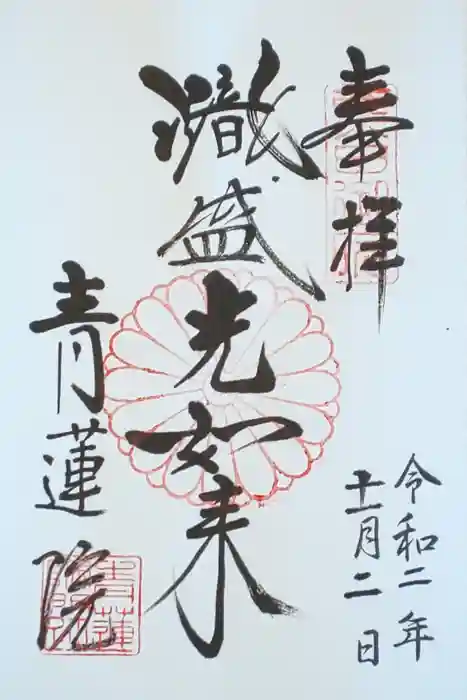 奉拝
令和二年
十一月二日
熾盛光如来
青蓮院